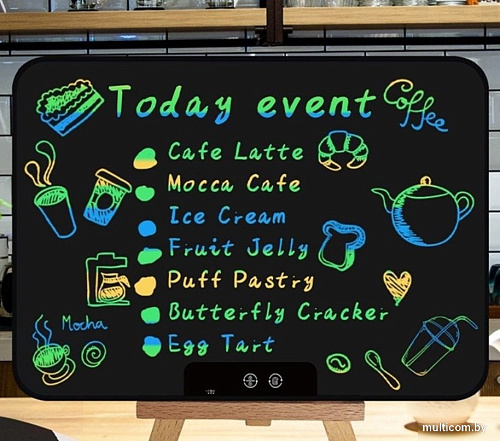 Today event
Coffee
Cafe Latte
Mocca Cafe
Ice Cream
Fruit Jelly
Puff Pastry
Butterfly Cracker
Mocha
Egg Tart
multicom.by